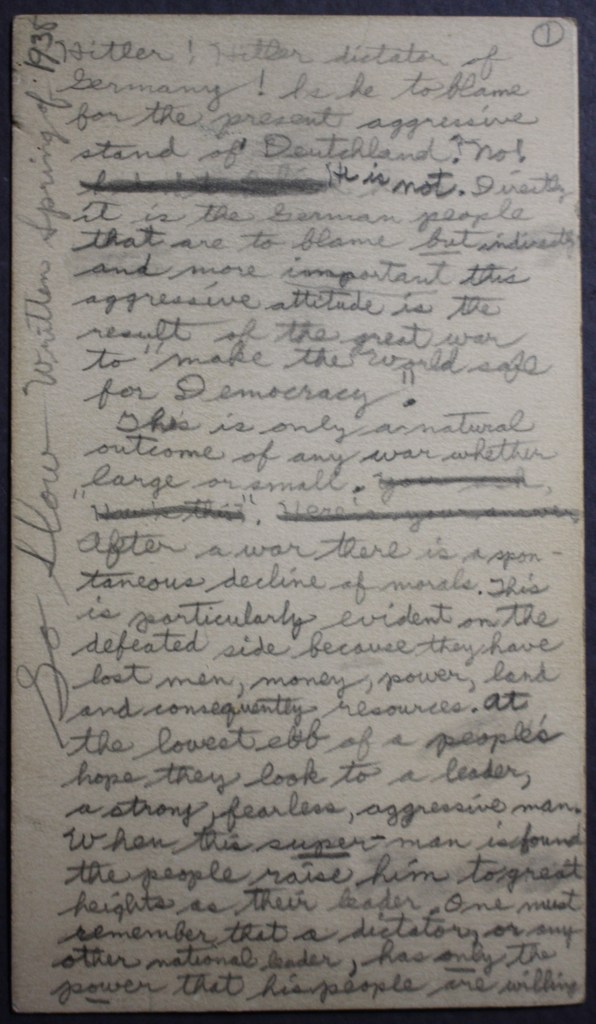 1
Go Slow Written Spring of 1938
Hitler! Hitler dictator of
Germany! Is he to blame
for the present aggressive
stand of Deutchland? No!
He is not. Directly
it is the German people
that are to blame but indirectly
and more important this
aggressive attitude is the
result of the great war
to "make the world safe
for Democracy".
This is only a natural
outcome of any war whether
large or small. you ask,
"How's this". Here's your answer
After a war there is a spon-
taneous decline of morals. This
is particularly evident on the
defeated side because they have
lost men, money, power, land
and consequently resources. At
the lowest ebb of a people's
hope they look to a leader,
a strong, fearless, aggressive man.
When this super-man is found
the people raise him to great
heights as their leader. One must
remember that a dictator, or any
other national leader, has only the
power that his people are willing